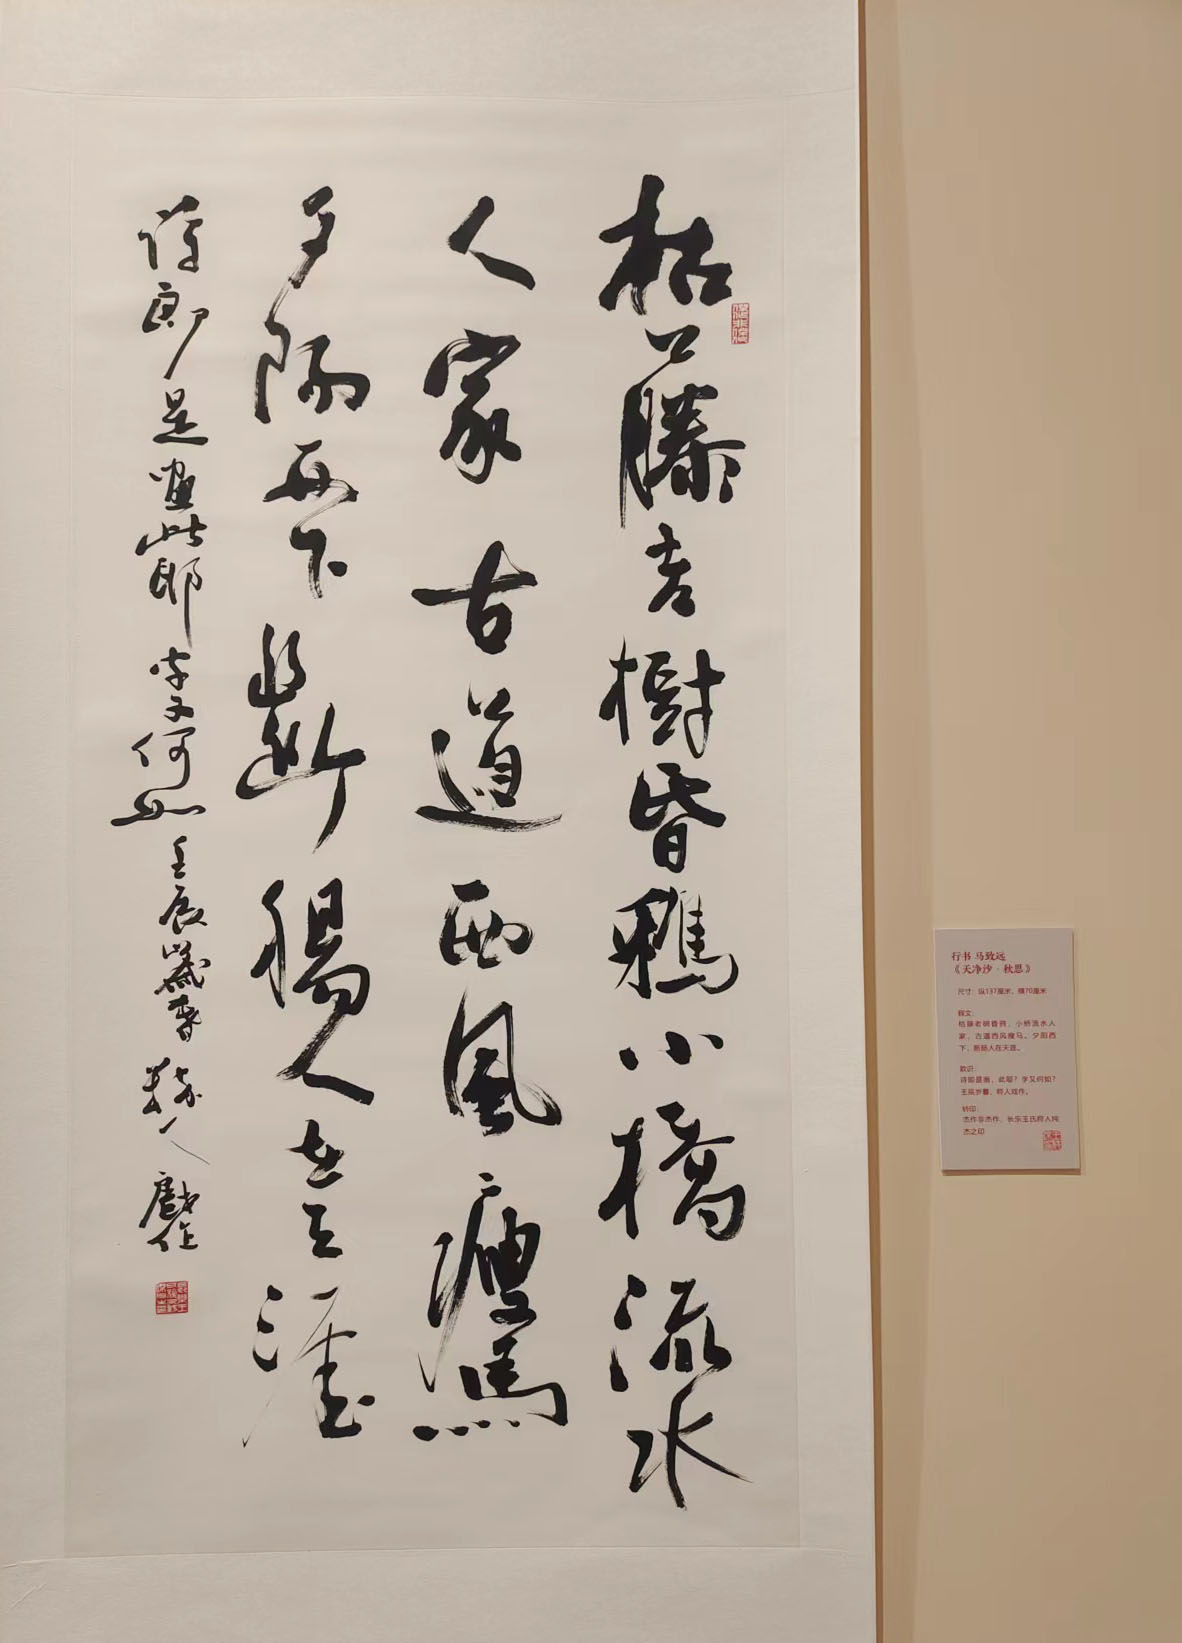 枯藤老樹昏鴉小橋流水
人家古道西風瘦馬
夕陽西下斷腸人在天涯
詩即是畫此耶字又何如壬辰歲暮秝人戲作
行书 马致远
《天净沙·秋思》
尺寸：纵137厘米，横70厘米
释文：
枯藤老树昏鸦，小桥流水人
家，古道西风瘦马。夕阳西
下，断肠人在天涯。
款识：
诗即是画，此耶？字又何如？
壬辰岁暮，秝人戏作。
钤印：
杰作非杰作、长乐王氏秝人纯
杰之印